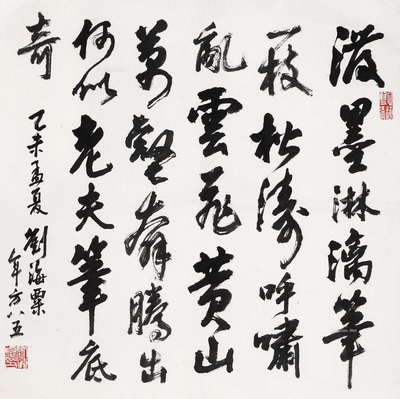 潑墨淋漓筆
一枝松濤呼嘯
亂雲飛黃山
萬壑奔騰出
何似老夫筆底
奇
未孟夏 劉海粟
年方八五